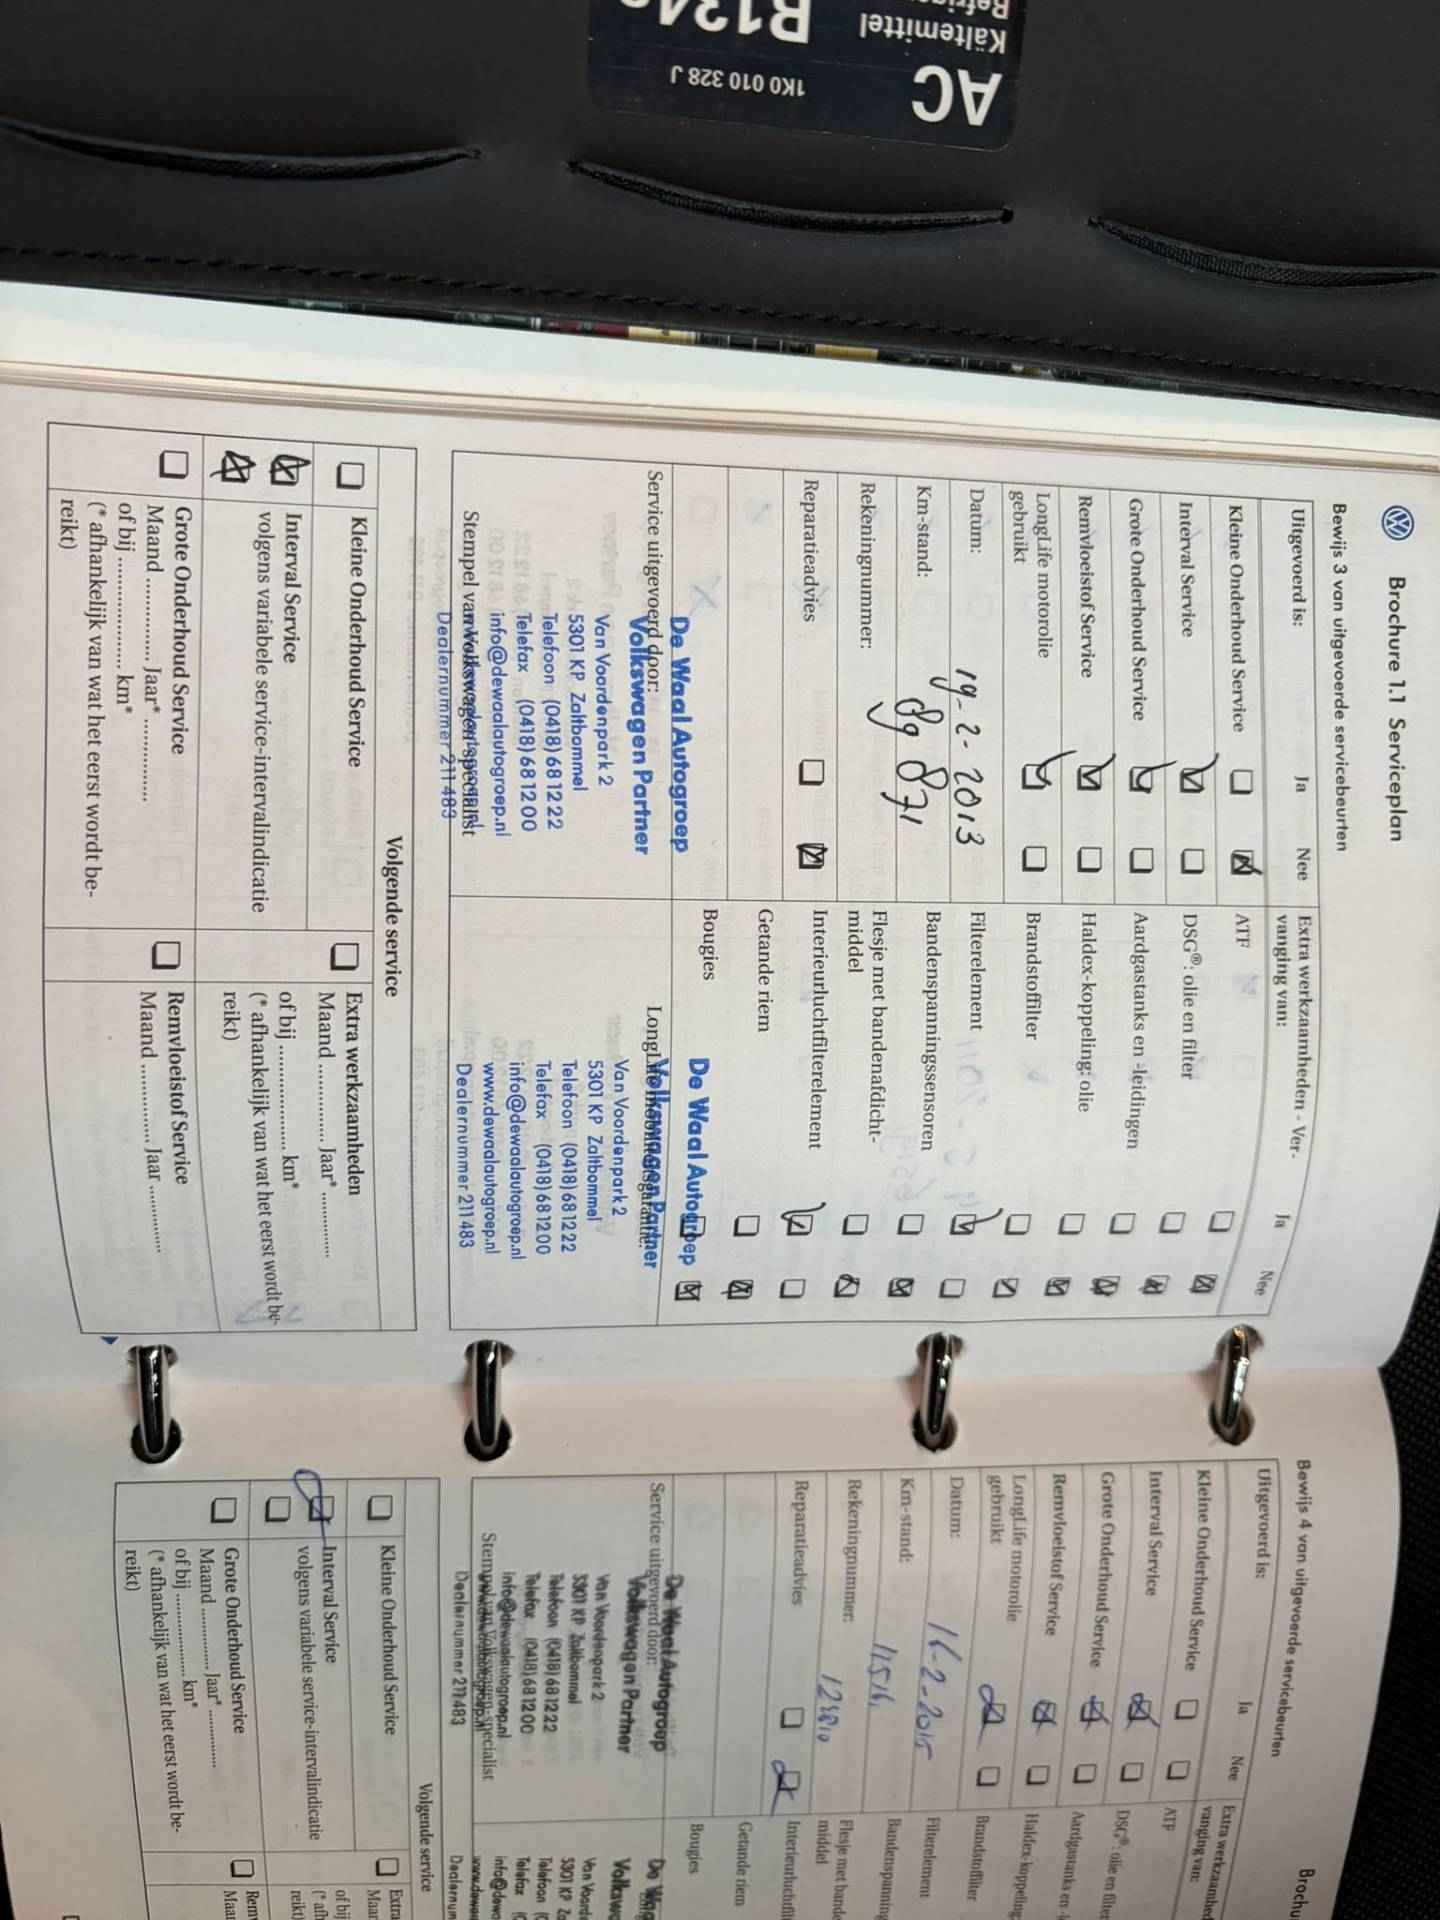 AC
1K0 010 328 J
Kältemittel
Brochure 1.1 Serviceplan
Bewijs 3 van uitgevoerde servicebeurten
Uitgevoerd is: Ja Nee
Kleine Onderhoud Service
Interval Service
Grote Onderhoud Service
Remvloeistof Service
LongLife motorolie
gebruikt
Datum: 19-2-2013
Km-stand: 89 871
Rekeningnummer:
Reparatieadvies
Service uitgevoerd door:
De Waal Autogroep
Volkswagen Partner
Van Voordenpark 2
5301 KP Zaltbommel
Telefoon (0418) 68 12 22
Telefax (0418) 68 12 00
info@dewaalautogroep.nl
Stempel van Volkswagen-specialist
Dealernummer 211 483
Extra werkzaamheden - Ver-
vanging van: Ja Nee
ATF
DSG®: olie en filter
Aardgastanks en -leidingen
Haldex-koppeling: olie
Brandstoffilter
Filterelement
Bandenspanningssensoren
Flesje met bandenafdicht-
middel
Interieurluchtfilterelement
Getande riem
Bougies
De Waal Autogroep
Volkswagen Partner
Van Voordenpark 2
5301 KP Zaltbommel
Telefoon (0418) 68 12 22
Telefax (0418) 68 12 00
info@dewaalautogroep.nl
www.dewaalautogroep.nl
Dealernummer 211 483
Volgende service
Kleine Onderhoud Service
Interval Service
volgens variabele service-intervalindicatie
Grote Onderhoud Service
Maand ............... Jaar* ...............
of bij .................... km*
(* afhankelijk van wat het eerst wordt be-
reikt)
Extra werkzaamheden
Maand ............... Jaar* ...............
of bij .................... km*
(* afhankelijk van wat het eerst wordt be-
reikt)
Remvloeistof Service
Maand ............... Jaar ...............
Bewijs 4 van uitgevoerde servicebeurten
Uitgevoerd is: Ja Nee
Kleine Onderhoud Service
Interval Service
Grote Onderhoud Service
Remvloeistof Service
LongLife motorolie
gebruikt
Datum: 16-2-2015
Km-stand:
Rekeningnummer:
Reparatieadvies
Service uitgevoerd door:
De Waal Autogroep
Volkswagen Partner
Van Voordenpark 2
5301 KP Zaltbommel
Telefoon (0418) 68 12 22
Telefax (0418) 68 12 00
info@dewaalautogroep.nl
Stempel van Volkswagen-specialist
Dealernummer 211 483
vanging van:
ATF
DSG®: olie en filter
Aardgastanks en
Brandstoffilter
Filterelement
Flesje met
middel
Getande riem
Bougies
Volgende service
Kleine Onderhoud Service
Interval Service
volgens variabele service-intervalindicatie
Grote Onderhoud Service
Maand ............... Jaar* ...............
of bij .................... km*
(* afhankelijk van wat het eerst wordt be-
reikt)
Extra
of bij
reikt)